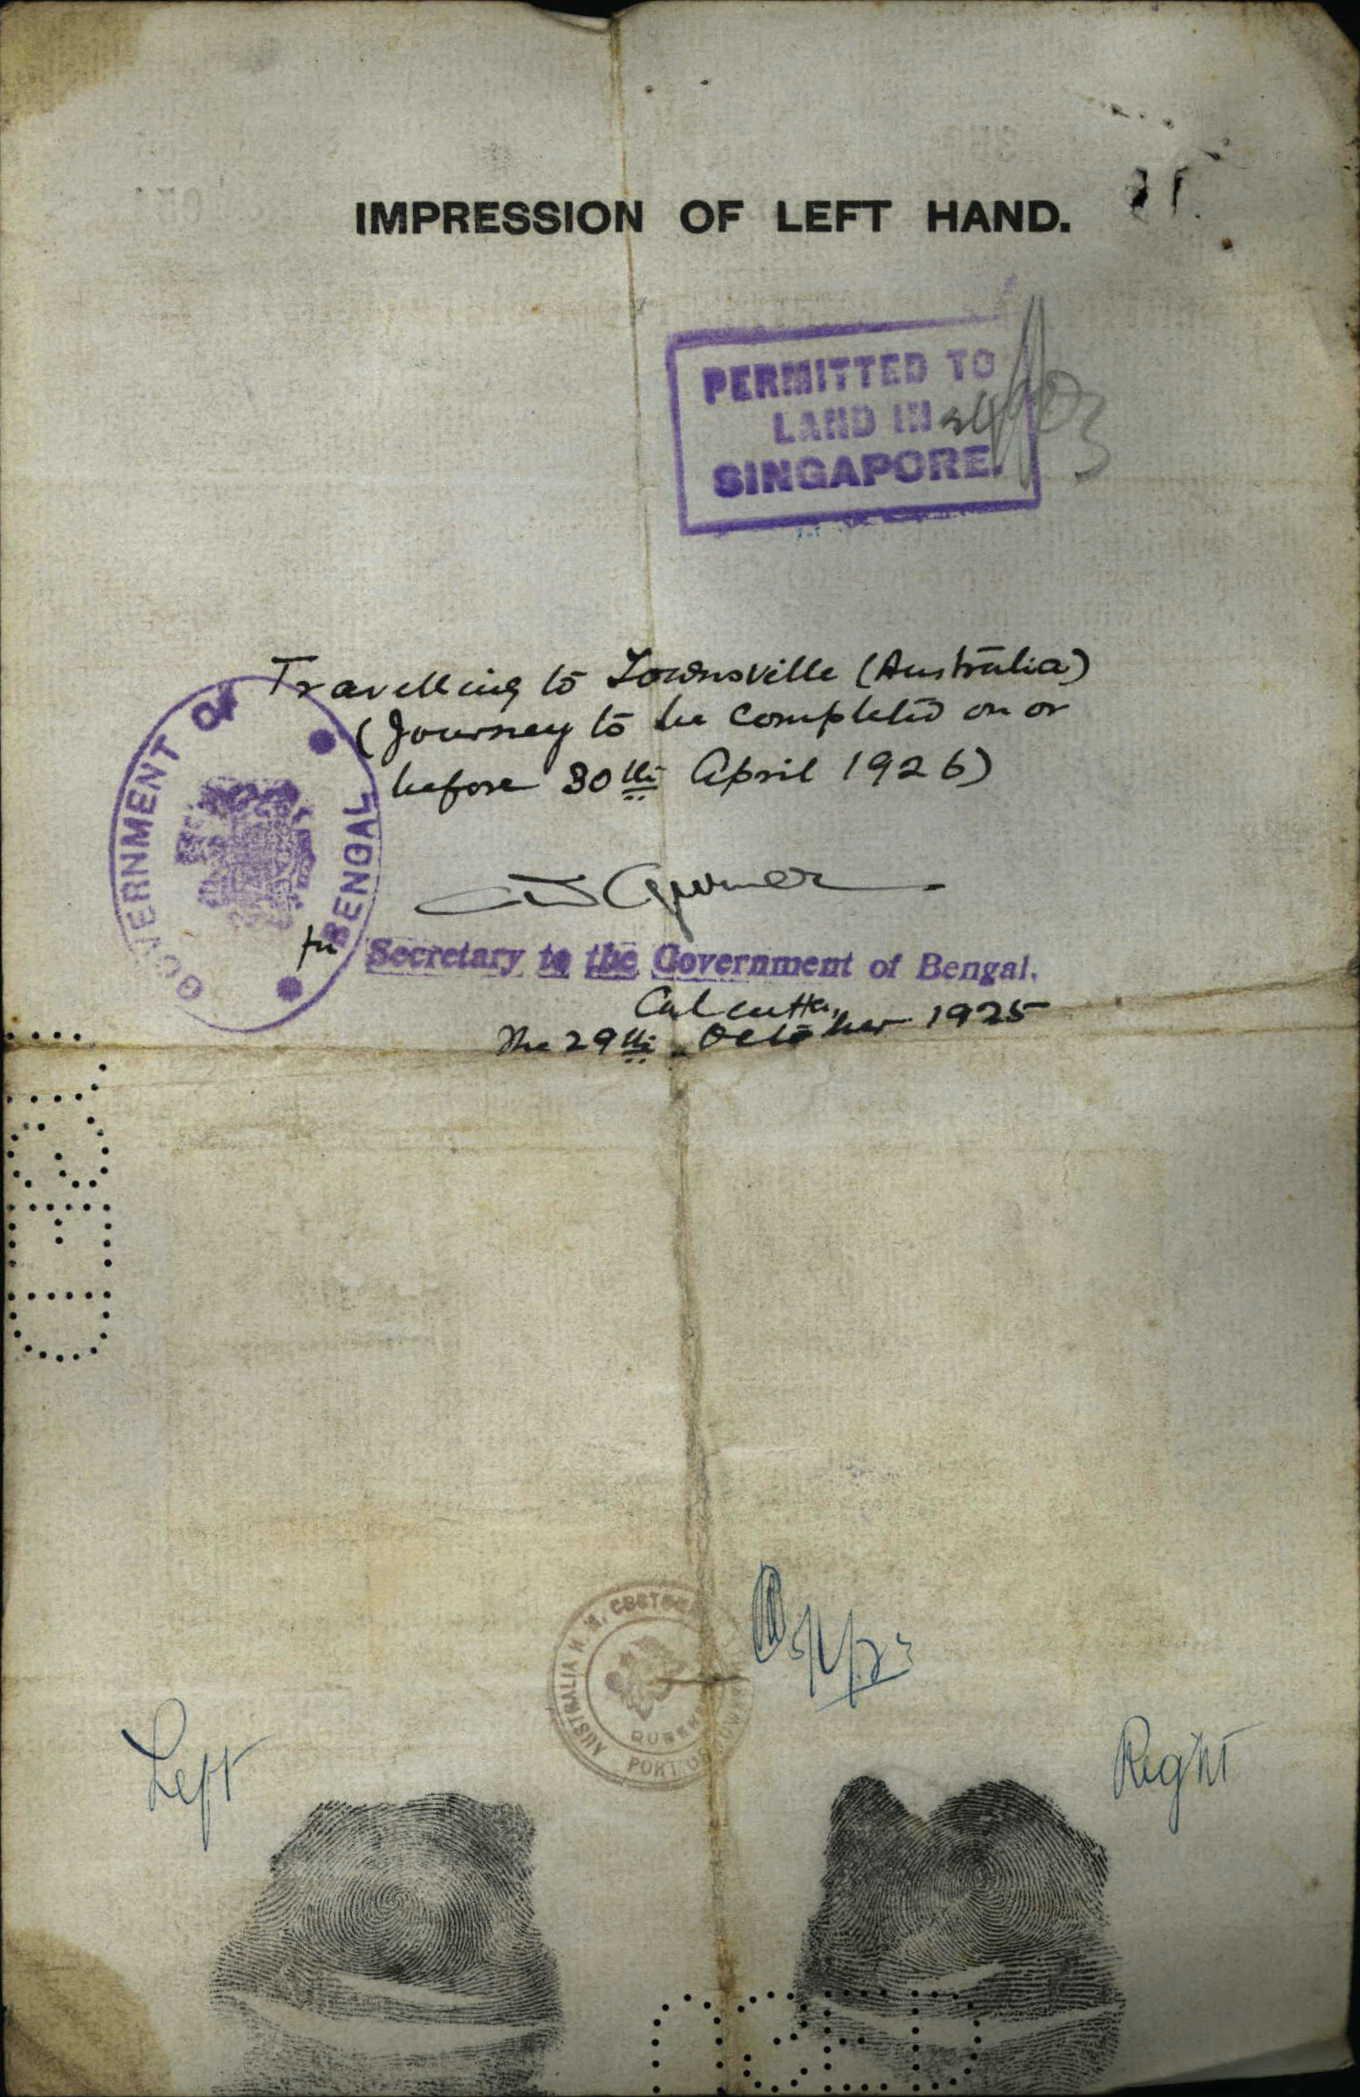 IMPRESSION OF LEFT HAND.
PERMITTED TO
LAND IN
SINGAPORE.
Travelling to Townsville (Australia)
(Journey to be completed on or
before 30th April 1926)
GOVERNMENT OF BENGAL
for Secretary to the Government of Bengal.
Calcutta,
The 29th October 1925
AUSTRALIA H. M. CUSTOMS
PORT OF
Left
Right